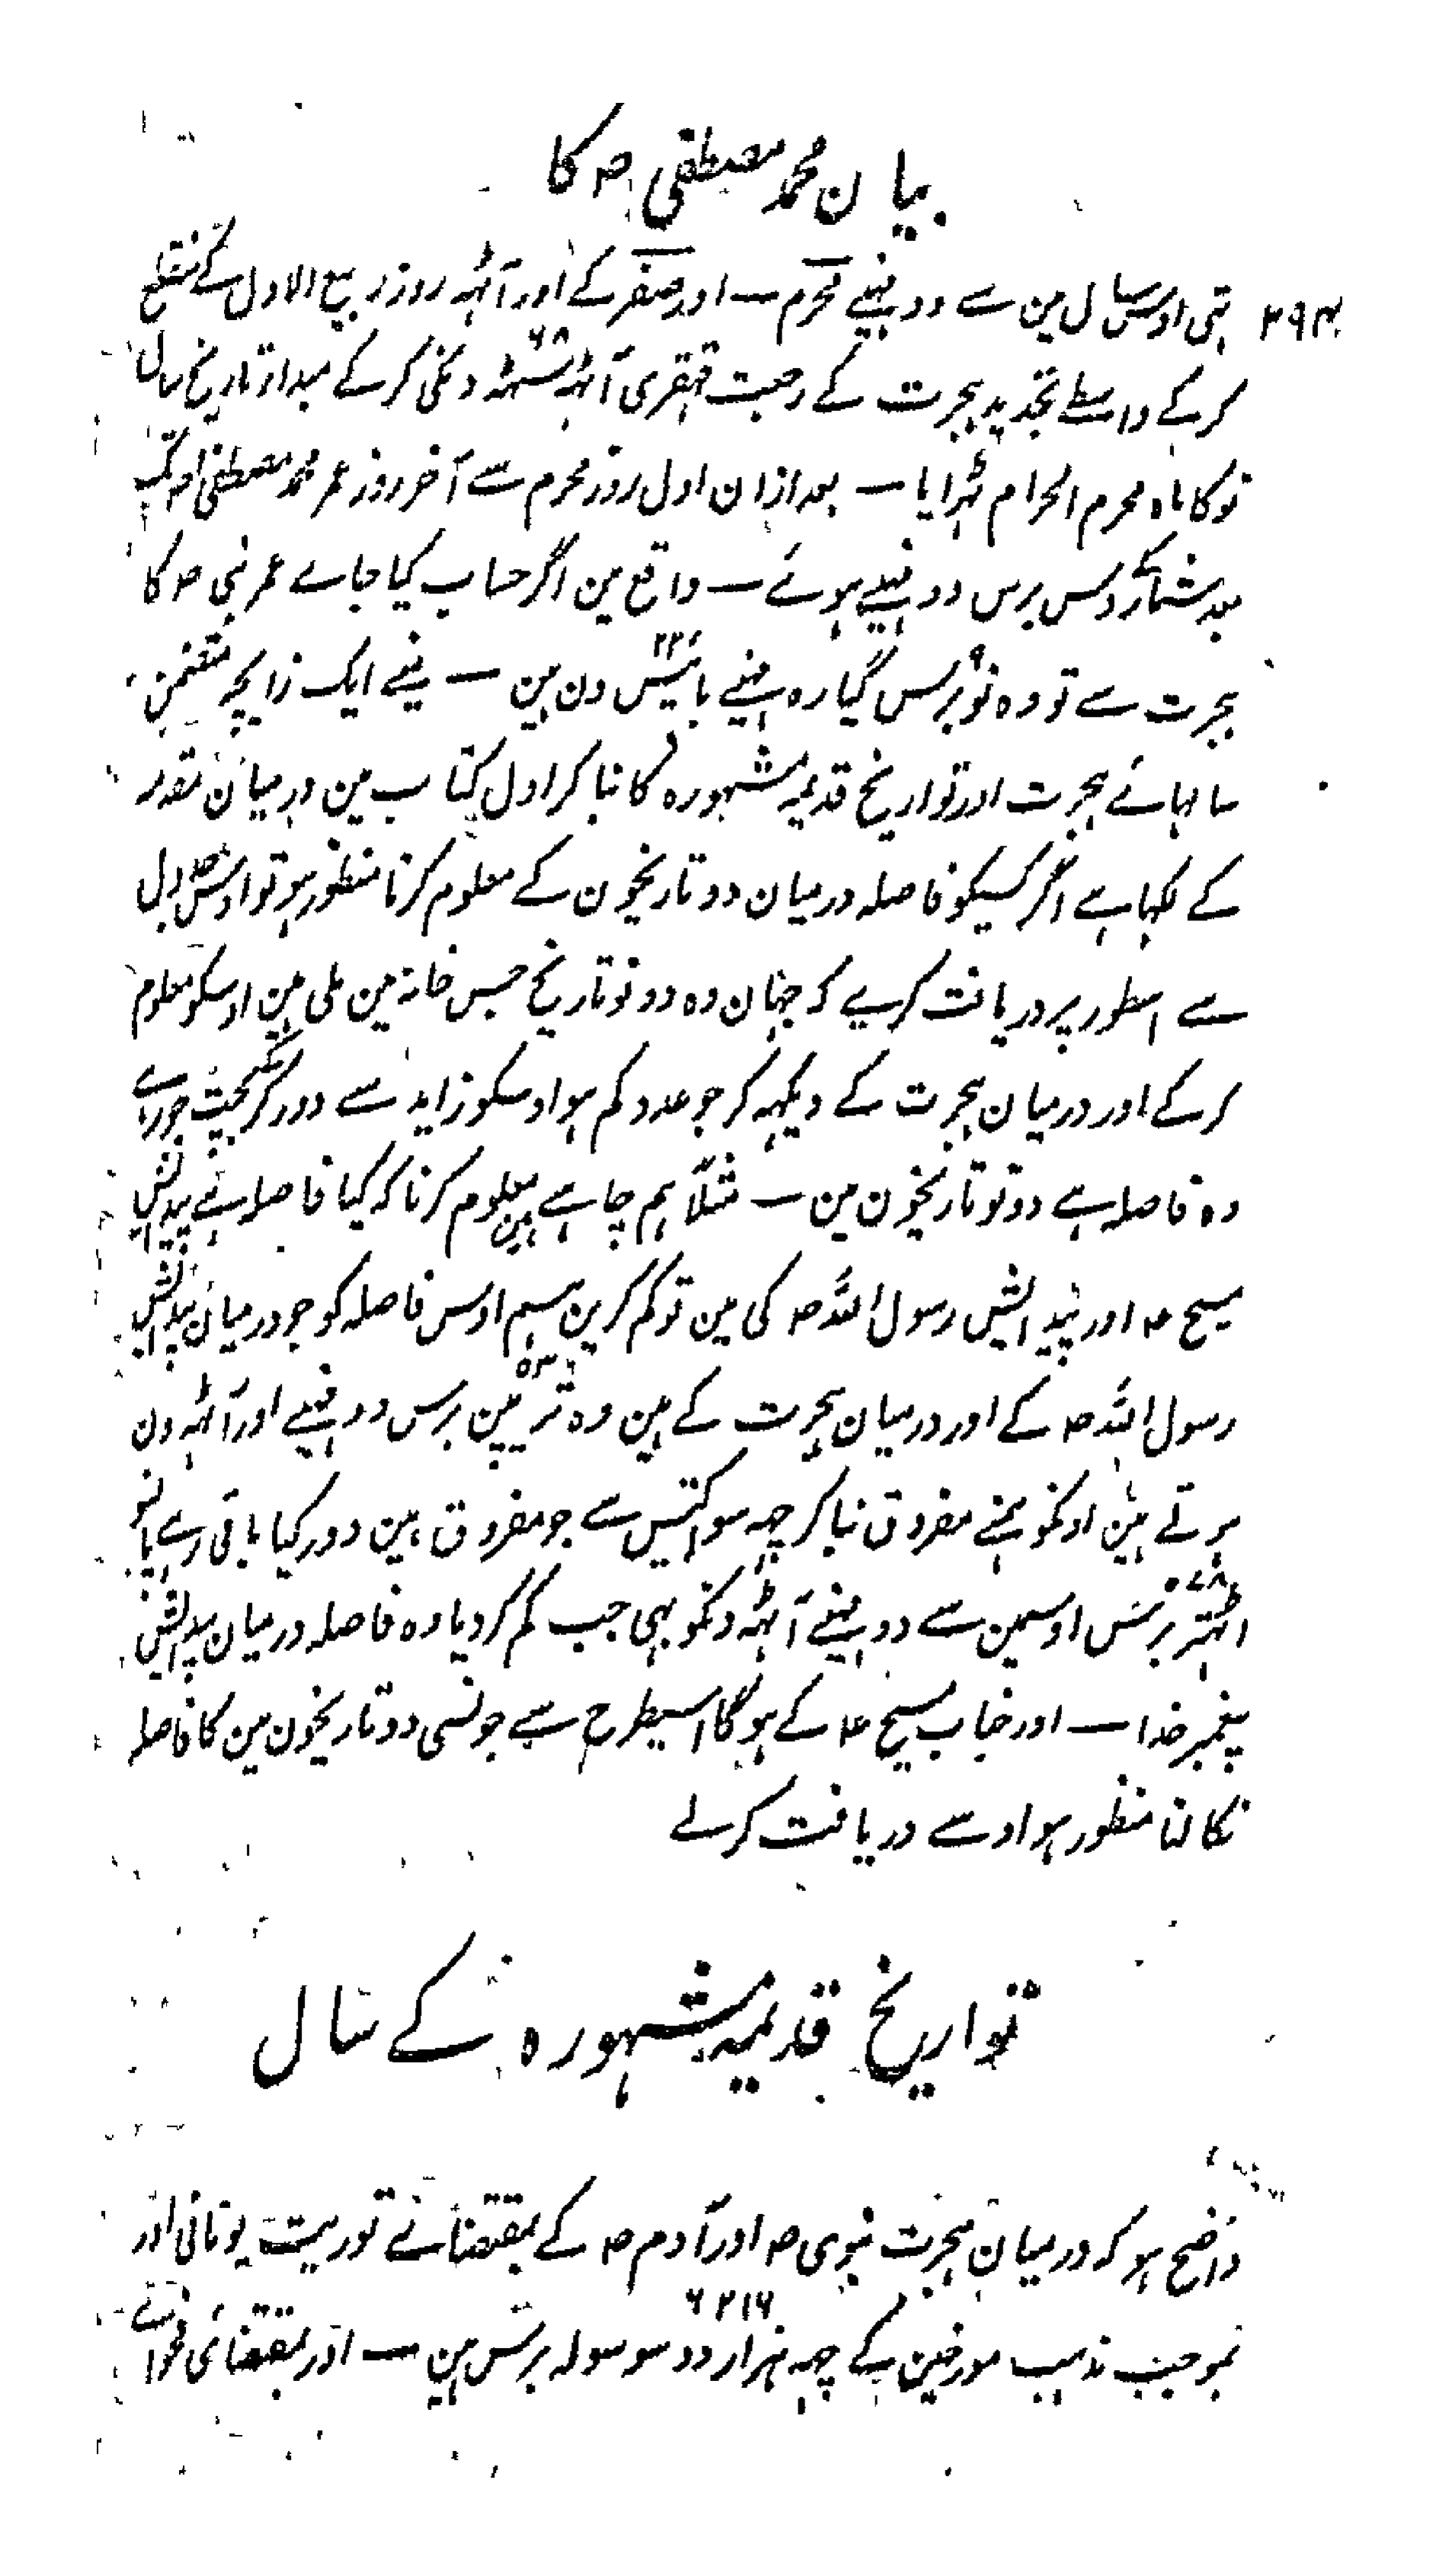 بیان محمد مصطفی ص کا
۲۹۴ تھی اوس سال مین سے دو مہینے محرم — اور صفر کے اور آٹھہ روز ربیع الاول کے منقطع
کرکے واسطے تجدید ہجرت کے رجعت قہقری ۶۸ اٹھسٹہہ دنکی کرکے مبداء تاریخ سال
نو کا ماہ محرم الحرام ٹہرایا — بعد ازان اول روز محرم سے آخر روز عمر محمد مصطفی ص تک
بعد شمار کے دس برس دو مہینے ہوئے — واقع مین اگر حساب کیا جاے عمر نبی ص کا
ہجرت سے تو وہ ۹ نو برس گیارہ مہینے ۲۲ بائیس دن ہین — مینے ایک زایچہ متضمن
سالہائے ہجرت اور تواریخ قدیمہ مشہورہ کا بنا کر اول کتاب مین درمیان مقدمہ
کے لکہا ہے اگر کسیکو فاصلہ درمیان دو تاریخون کے معلوم کرنا منظور ہو تو اوس جدول
سے اسطور پر دریافت کرے کہ جہان وہ دونو تاریخ جس خانہ مین ملی ہین اوسکو معلوم
کرکے اور درمیان ہجرت کے دیکہہ کر جو عدد کم ہو اوسکو زاید سے دور کر کے بچت جو رہے
وہ فاصلہ ہے دونو تاریخون مین — مثلاً ہم چاہے ہین معلوم کرنا کہ کیا فاصلہ ہے پیدایش
مسیح ع اور پیدایش رسول اللہ ص کی مین تو کم کرین ہم اوس فاصلہ کو جو درمیان پیدایش
رسول اللہ ص کے اور درمیان ہجرت کے ہین وہ ۵۳ ترپین برس دو مہینے اور آٹھہ دن
ہوتے ہین اونکو ہمنے مفروق بنا کر چہہ سو اکتیس سے جو مفروق ہین دور کیا باقی رہے پانسو
۵۷۸ اٹہتر برس اوسمین سے دو مہینے آٹھہ دنکو بہی جب کم کر دیا وہ فاصلہ درمیان پیدایش
پیغمبر خدا — اور جناب مسیح ع کے ہوگا اسیطرح سے جونسی دو تاریخون مین کا فاصلہ
نکالنا منظور ہو اوسے دریافت کرلے
تواریخ قدیمہ مشہورہ کے سال
واضح ہو کہ درمیان ہجرت نبوی ص اور آدم ع کے بمقتضائے توریت یونانی اور
بموجب مذہب مورخین کے ۶۲۱۶ چہہ ہزار دو سو سولہ برس ہین — اور بمقتضائی فحوائے